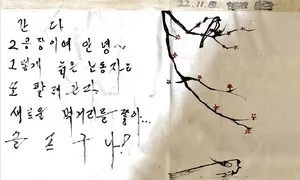 간 다
2공장이여 안녕~
그렇게 늙은 노동자는
또 팔려 간다
새로운 먹거리를 찾아...
슬 프 구 나?
22.11.